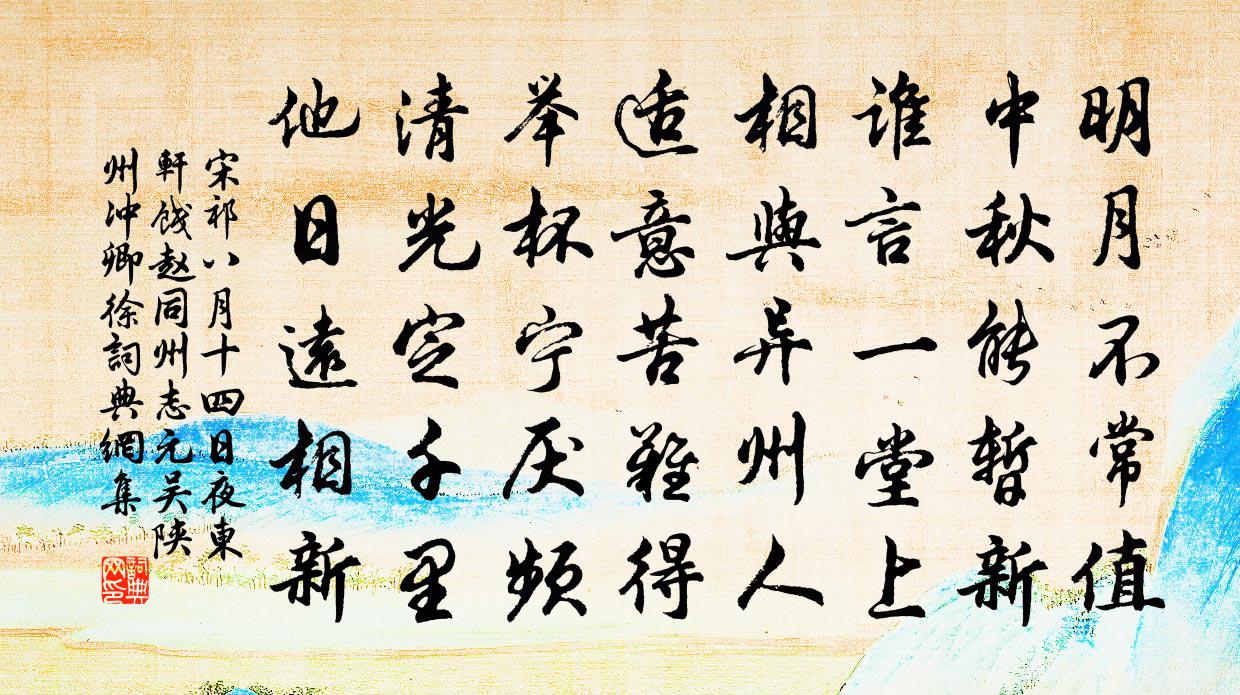 明月不常值
中秋能暫新
谁言一堂上
相與异州人
适意苦難得
举杯宁厌频
清光定千里
他日遠相新
宋祁八月十四日夜東
軒饯赵同州志元吴陕
州冲卿徐詞典網集
詞典网印